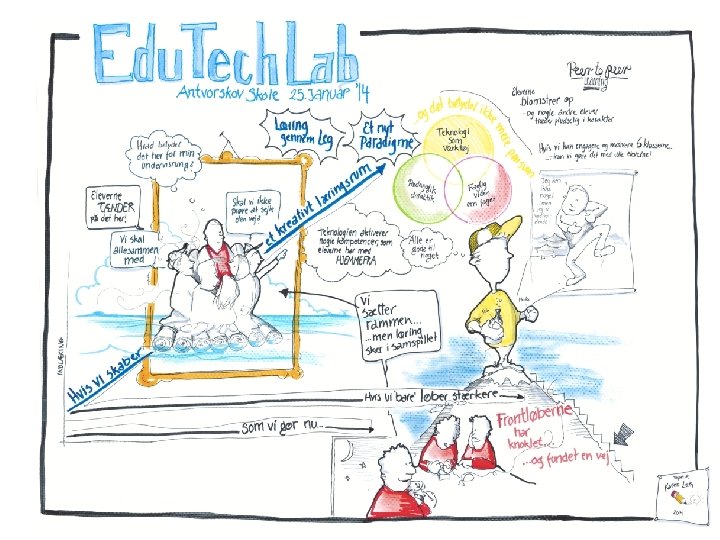 EduTechLab
Antvorskov Skole 25. Januar '14
Peer to peer
læring
Eleverne
blomstrer op
- Og nogle andre elever
træder pludselig i karakter
Hvis vi kan engagere og motivere 6 klasserne..
... kan vi gøre det med alle eleverne!
.. og det betyder ikke mere
Læring
gennem leg
Et nyt
Paradigme
Teknologi
som
værktøj
Pædagogik
didaktik
Faglig
viden
om faget
Hvad betyder
det her for min
undervisning?
Eleverne
TÆNDER
på det her!
Vi skal
allesammen
med
Skal vi ikke
prøve at sejle
den vej?
Teknologien aktiverer
nogle kompetencer, som
eleverne har med
HJEMMEFRA
Alle er
gode til
noget
ikke
noget
men
jeg er
Vi
sætter
rammen...
...men læring
sker i samspillet
Hvis vi skaber
et kreativt læringsrum
Hvis vi 'bare' løber stærkere
som vi gør nu...
Frontløberne
har
knoklet...
...og fundet en vej
2014